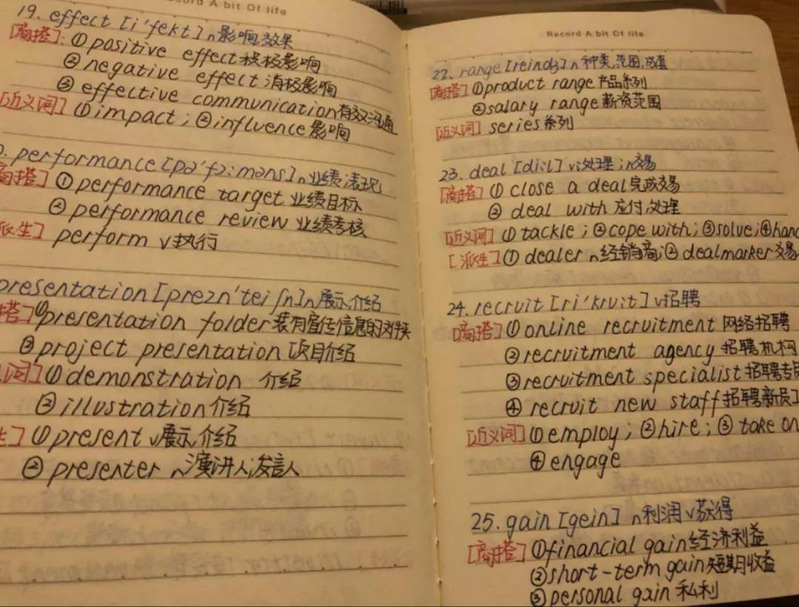 Record A bit Of life
19. effect [i'fekt] n影响,效果
[高搭]: ①positive effect积极影响
②negative effect 消极影响
③effective communication有效沟通
[近义词]①impact ; ②influence影响
performance[pə'fɔ:məns]n业绩;表现
[高搭] ①performance target 业绩目标
②performance review 业绩考核
[派生] perform v执行
presentation[prezn'teiʃn]n展示,介绍
①presentation folder装有宣传信息的文件夹
②project presentation 项目介绍
①demonstration 介绍
②illustration介绍
①present v展示,介绍
②presenter n演讲人,发言人
Record A bit Of life
22. range[reindʒ]n 种类,范围,
[高搭]①product range产品系列
②salary range薪资范围
[近义词] series系列
23. deal [di:l] v处理 ;n交易
[高搭] ① close a deal完成交易
② deal with 应付,处理
[近义词]①tackle ; ②cope with; ③solve;④hand
[派生]①dealer n经销商;②dealmarker交易
24. recruit [ri'kruit] v招聘
[高搭]①online recruitment 网络招聘
②recruitment agency 招聘机构
③recruitment specialist招聘专员
④ recruit new staff招聘新员工
[近义词]①employ ; ②hire ; ③ take on
④engage
25. gain [gein] n利润 v获得
[高搭]①financial gain经济利益
②short-term gain短期收益
③personal gain 私利